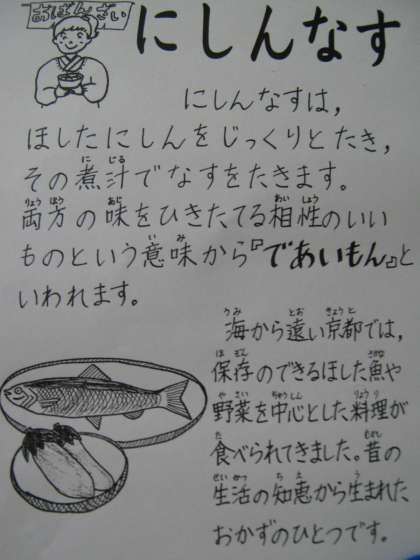 おばんざい
にしんなす
にしんなすは,
ほしたにしんをじっくりとたき,
その煮汁でなすをたきます。
両方の味をひきたてる相性のいい
ものという意味から『であいもん』と
いわれます。
海から遠い京都では,
保存のできるほした魚や
野菜を中心とした料理が
食べられてきました。昔の
生活の知恵から生まれた
おかずのひとつです。